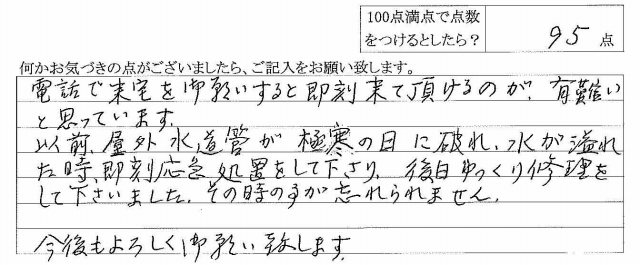 100点満点で点数
をつけるとしたら？
95点
何かお気づきの点がございましたら、ご記入をお願い致します。
電話で来宅を御願いすると即刻来て頂けるのが、有難い
と思っています。
以前、屋外水道管が極寒の日に破れ、水が溢れ
た時、即刻応急処置をして下さり、後日ゆっくり修理を
して下さいました。その時の事が忘れられません。
今後もよろしく御願い致します。